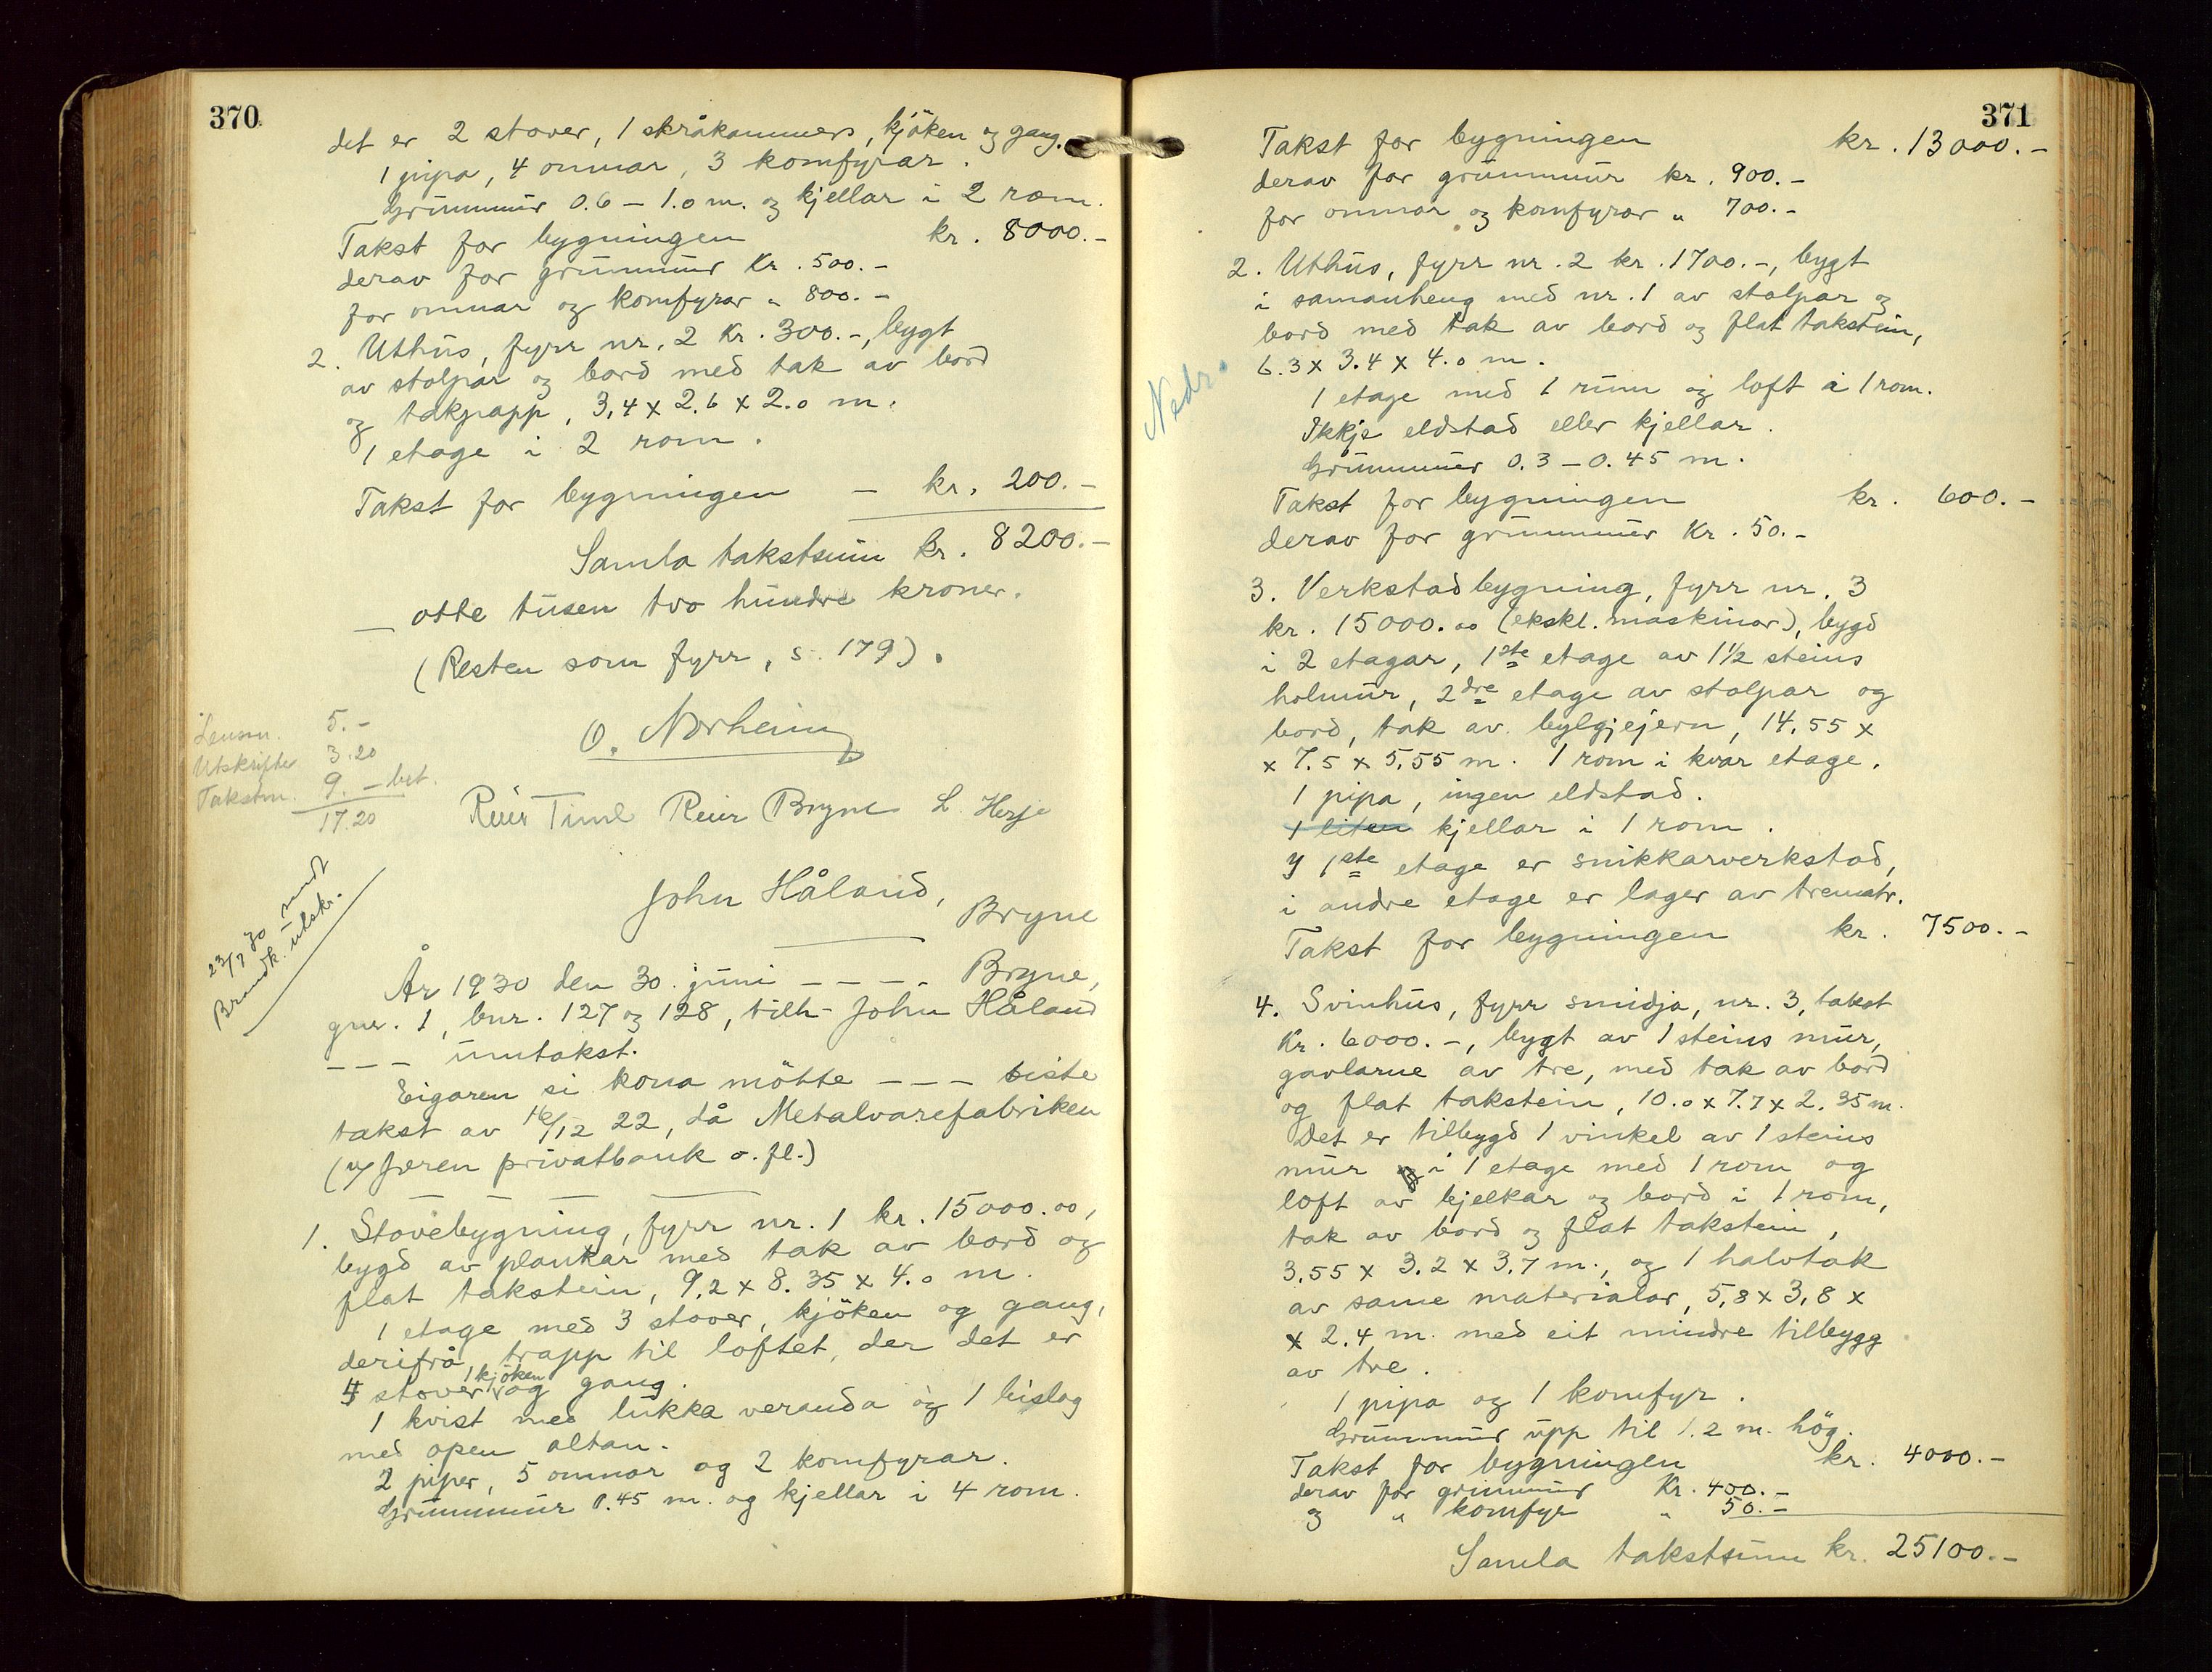 370
det er 2 stover, 1 skråkammers, kjöken og gang.
1 pipa, 4 omnar, 3 komfyrar.
Grunnmur 0.6 – 1.0 m. og kjellar i 2 rom.
Takst for bygningen kr. 8000.–
derav for grunnmur Kr. 500.–
for omnar og komfyrar " 800.–
2. Uthus, fyrr nr. 2 kr. 300.–, bygt
av stolpar og bord med tak av bord
og takpapp, 3,4 x 2.6 x 2.0 m.
1 etage i 2 rom.
Takst for bygningen – kr. 200.–
Samla takstsum kr. 8200.–
– otte tusen tvo hundre kroner.
(Resten som fyrr, s. 179).
O. Norheim
Lensm. 5.–
Utskrifter 3.20
Takstm. 9.– bet.
17.20
Reier Time Reier Bryne L. Herje
23/7 30 sendt
Brandk. utskr.
John Håland,
Bryne
År 1930 den 30. juni – – – – Bryne,
gnr. 1, bnr. 127 og 128, tilh. John Håland
– – – umtakst.
Eigaren si kona mötte – – – siste
takst av 16/12 22, då Metalvarefabriken
(v/ Jæren privatbank o. fl.)
1. Stovebygning, fyrr nr. 1 kr. 15000.00,
bygd av plankar med tak av bord og
flat takstein, 9.2 x 8.35 x 4.0 m.
1 etage med 3 stover, kjöken og gang,
derifrå trapp til loftet, der det er
4 stover, 1 kjöken og gang.
1 kvist med lukka veranda og 1 bislag
med open altan.
2 piper, 5 omnar og 2 komfyrar.
Grunnmur 0.45 m. og kjellar i 4 rom.
371
Takst for bygningen kr. 13000.–
derav for grunnmur kr. 900.–
for omnar og komfyrar " 700.–
2. Uthus, fyrr nr. 2 kr. 1700.–, bygt
i samanheng med nr. 1 av stolpar og
bord med tak av bord og flat takstein,
6.3 x 3.4 x 4.0 m.
Nedr.
1 etage med 1 rum og loft i 1 rom.
Ikkje eldstad eller kjellar.
Grunnmur 0.3 – 0.45 m.
Takst for bygningen kr. 600.–
derav for grunnmur Kr. 50.–
3. Verkstadbygning, fyrr nr. 3
kr. 15000.00 (ekskl. maskinar), bygd
i 2 etagar, 1ste etage av 1½ steins
holmur, 2dre etage av stolpar og
bord, tak av bylgjejern, 14.55 x
x 7.5 x 5.55 m. 1 rom i kvar etage.
1 pipa, ingen eldstad.
1 liten kjellar i 1 rom.
I 1ste etage er snikkarverkstad,
i andre etage er lager av trematr.
Takst for bygningen kr. 7500.–
4. Svinhus, fyrr smidja, nr. 3, takst
Kr. 6000.–, bygt av 1 steins mur,
gavlarne av tre, med tak av bord
og flat takstein, 10.0 x 7.7 x 2.35 m.
Det er tilbygd 1 vinkel av 1 steins
mur i 1 etage med 1 rom og
loft av bjelkar og bord i 1 rom,
tak av bord og flat takstein,
3.55 x 3.2 x 3.7 m., og 1 halvtak
av same materialar, 5.8 x 3.8 x
x 2.4 m. med eit mindre tilbygg
av tre.
1 pipa og 1 komfyr.
Grunnmur upp til 1.2 m. hög.
Takst for bygningen kr. 4000.–
derav for grunnmur Kr. 400.–
og " komfyr " 50.–
Samla takstsum kr. 25100.–